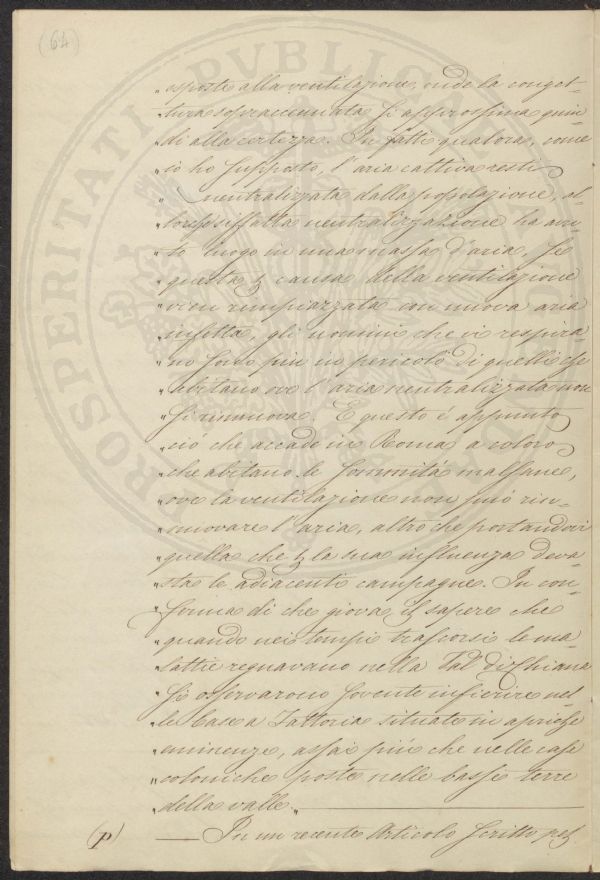 (64)
„ esposte alla ventilazione, onde la conget-
„ tura sopraccennata si approssima quin-
„ di alla certezza. In fatti qualora, come
„ io ho supposto, l'aria cattiva resti
„ neutralizzata dalla popolazione, al-
„ lorché siffatta neutralizzazione ha avu-
„ to luogo in una massa d'aria, se
„ questa p causa della ventilazione
„ vien rimpiazzata con nuova aria
„ infetta, gli uomini che vi respira-
„ no sono più in pericolo di quelli che
„ abitano ove l'aria neutralizzata non
„ si rinnuova. E questo é appunto
„ ció che accade in Roma a coloro
„ che abitano le sommitá malsane,
„ ove la ventilazione non puó rin-
„ nuovare l'aria, altro che portandovi
„ quella che p la sua influenza deva-
„ sta le adiacenti campagne. In con-
„ forma di che giova il sapere che
„ quando nei tempi trascorsi le ma-
„ lattie regnavano nella Val di Chiana
„ si osservarono sovente infierire nel-
„ le Case a Fattoria situate in apriche
„ eminenze, assai piú che nelle case
„ coloniche poste nelle basse terre
„ della valle.
(p) — In un recente Articolo scritto pel
PROSPERITATI PVBLICAE